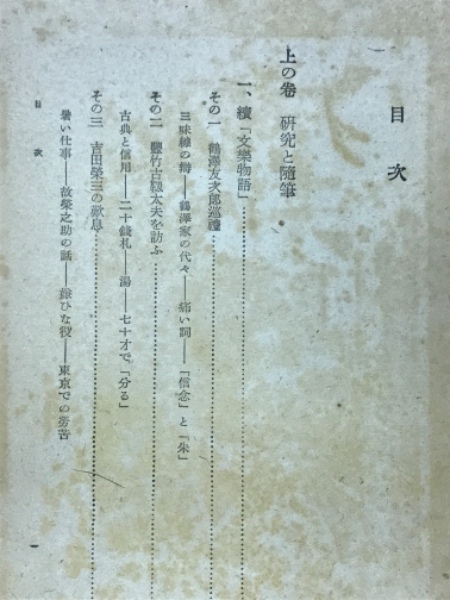 目次
上の巻 研究と隨筆
一、續「文樂物語」
その一 鶴澤友次郎巡禮
三味線の撥――鶴澤家の代々――痛い調――「信念」と「朱」
その二 豐竹古靱太夫を訪ふ
古典と信用――二十錢札――湯――七十才で「分る」
その三 吉田榮三の歎息
暑い仕事――故榮之助の話――嫌ひな役――東京での勞苦
目次